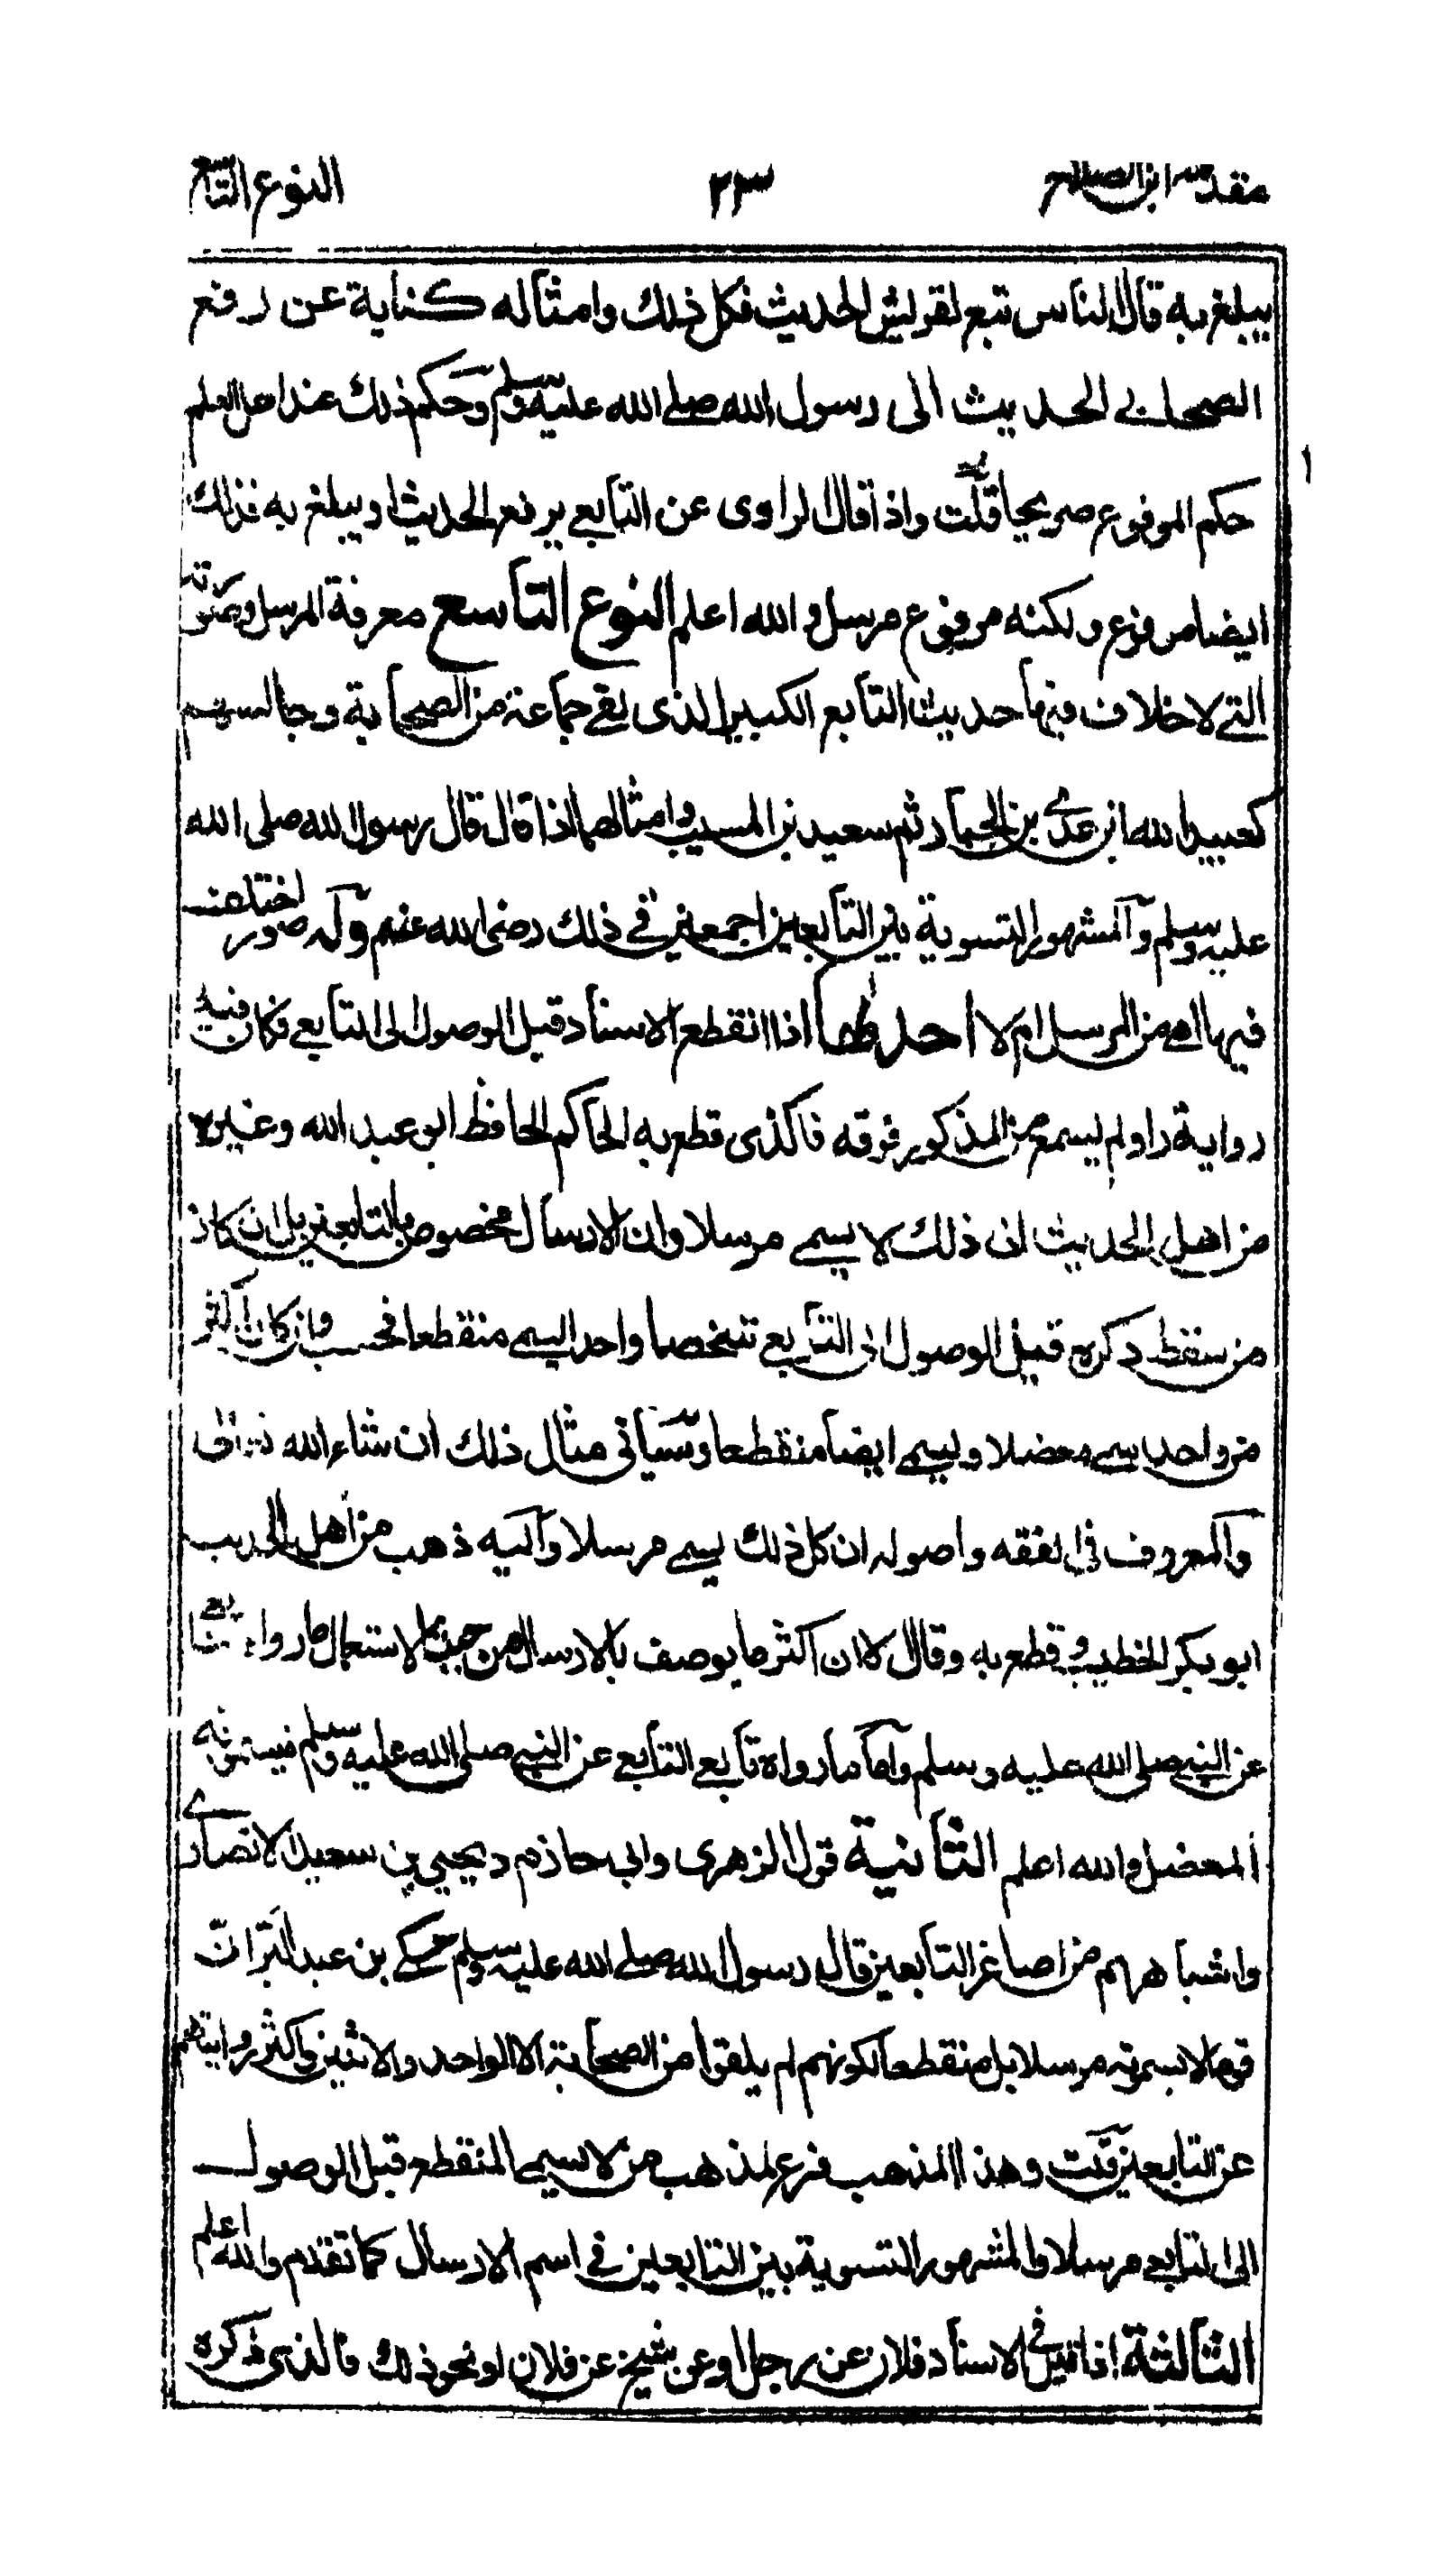 مقدمه ابن الصلاح ٢٣ النوع التاسع
يبلغ به قال الناس تبع لقريش الحديث فكل ذلك وامثاله كناية عن رفع
الصحابي الحديث الى رسول الله صلى الله عليه وسلم وحكم ذلك عند اهل العلم
حكم الموفوع صريحا قلت واذا قال الراوى عن التابعي يرفع الحديث او يبلغ به فذلك
ايضا مرفوع ولكنه مرفوع مرسل والله اعلم النوع التاسع معرفة المرسل وصورته
التي لا خلاف فيها حديث التابع الكبير الذى لقي جماعة من الصحابة وجالسهم
كعبيد الله ابن عدي بن الجبار ثم سعيد بن المسيب وامثالهما اذا قال قال رسول الله صلى الله
عليه وسلم والمشهور التسوية بين التابعين اجمعين في ذلك رضى الله عنهم وله صور اختلف
فيها اهي من المرسل ام لا احدها اذا انقطع الاسناد قبل الوصول الى التابعي فكان فيه
رواية راو لم يسمع من المذكور فوقه فالذى قطع به الحاكم الحافظ ابو عبد الله وغيره
من اهل الحديث ان ذلك لا يسمى مرسلا وان الارسال مخصوص بالتابعين بل ان كان
من سقط ذكره قبل الوصول الى التابعي شخصا واحدا يسمى منقطعا فحسب وان كان اكثر
من واحد يسمى معضلا ويسمى ايضا منقطعا وسياتى مثال ذلك ان شاء الله تعالى
والمعروف فى الفقه واصوله ان كل ذلك يسمى مرسلا واليه ذهب من اهل الحديث
ابو بكر الخطيب وقطع به وقال الا ان اكثر ما يوصف بالارسال من حيث الاستعمال ما رواه التابعي
عن النبي صلى الله عليه وسلم واما ما رواه تابعي التابعي عن النبي صلى الله عليه وسلم فيسمونه
المعضل والله اعلم الثانية قول الزهرى وابي حازم ويحيي بن سعيد الانصاري
واشباههم من اصاغر التابعين قال رسول الله صلى الله عليه وسلم حكي بن عبد البر ان
قوما لا يسمونه مرسلا بل منقطعا لكونهم لم يلقوا من الصحابة الا الواحد والاثنين واكثر روايتهم
عن التابعين قلت وهذا المذهب فرع لمذهب من لا يسمي المنقطع قبل الوصول
الى التابعي مرسلا والمشهور التسوية بين التابعين في اسم الارسال كما تقدم والله اعلم
الثالثة اذا قيل في الاسناد فلان عن رجل او عن شيخ عن فلان او نحو ذلك فالذى ذكره